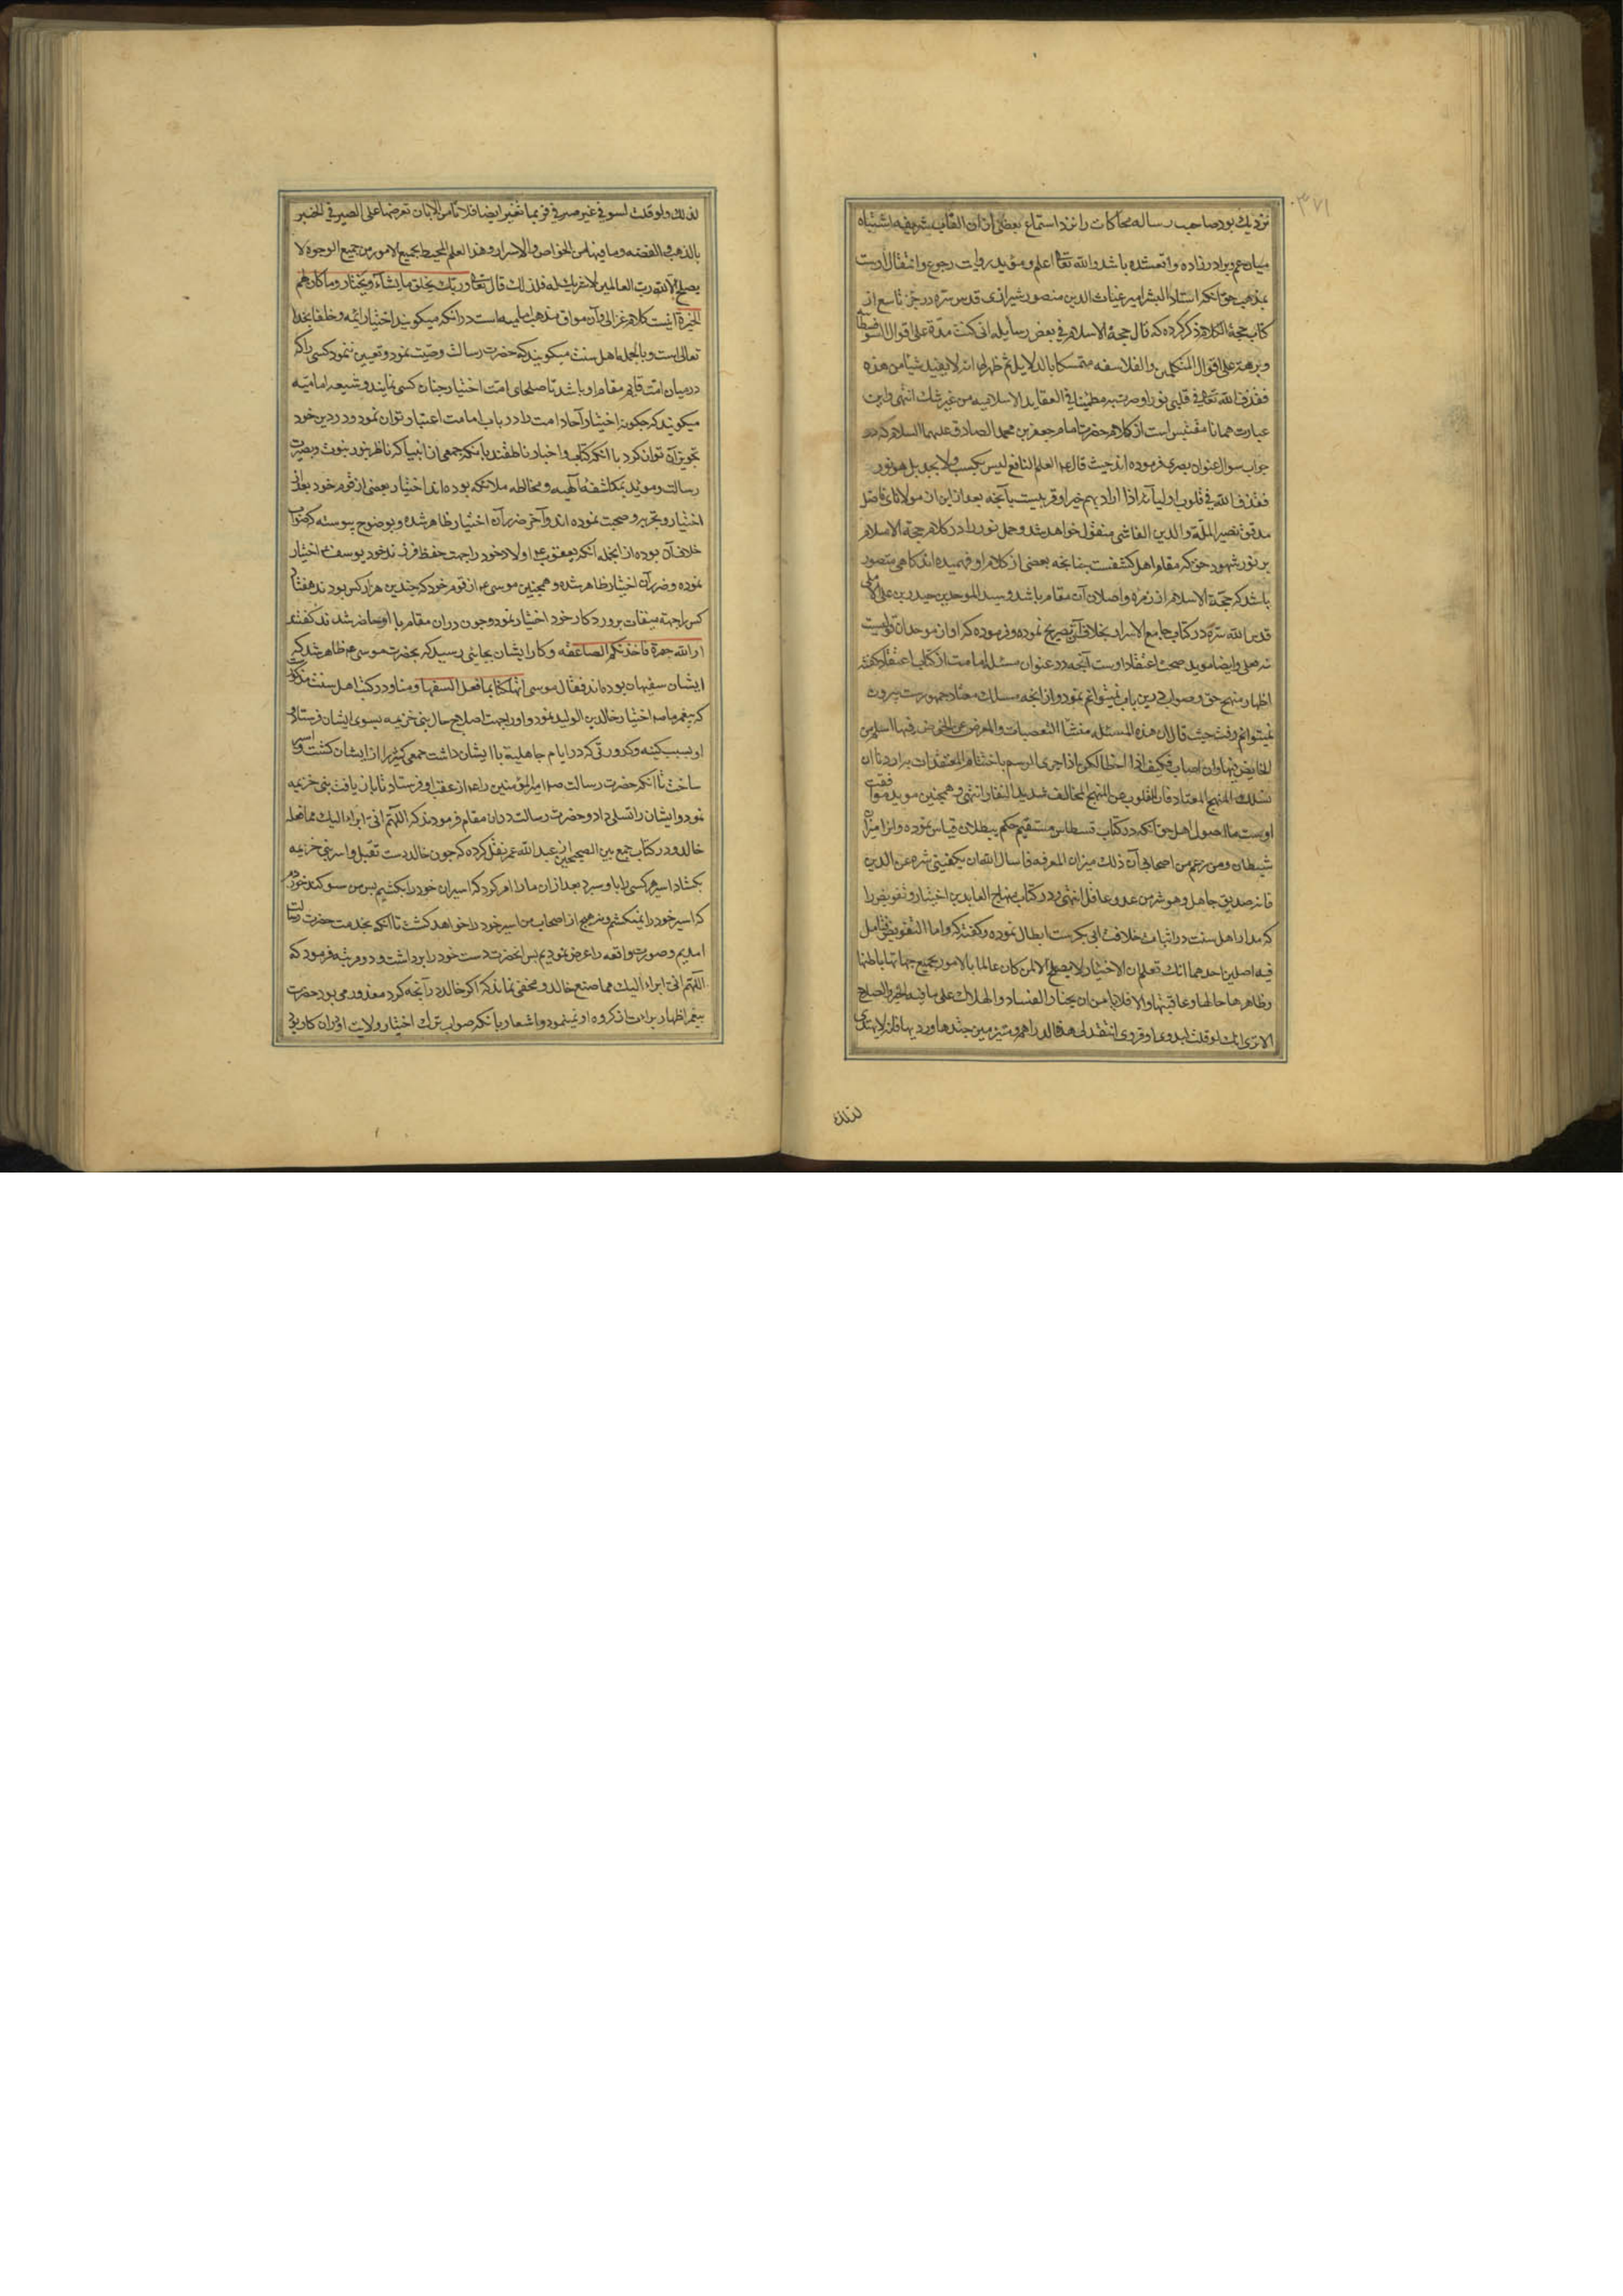 ٣٧١
نزدیك بود صاحب رساله محاکات را نزد استماع بعضی از ان القاب شریفه اشتباه
میان عم و برادرزاده واقع شده باشد والله تعالی اعلم و مؤید روایت رجوع و انتقال اوست
بمذهب حق انکه استاد البشر امیر غیاث الدین منصور شیرازی قدس سره در جزء تاسع از
کتاب حجة الکلام ذکر کرده که قال حجة الاسلام فی بعض رسایله انی کنت مدة علی اقوال السوفسطا
و برهة علی اقوال المتکلمین والفلاسفه متمسکا بالدلایل ثم ظهر لی انه لا یفید شیئا من هذه
فقذف الله تعالی فی قلبی نورا وصرت به مطمئنا فی العقاید الاسلامیه من غیر شك انتهی واین
عبارت همانا مقتبس است از کلام حضرت امام جعفر بن محمد الصادق علیهما السلام که در
جواب سوال عنوان بصری فرموده اند حیث قال العلم النافع لیس بکسب ولا بجد بل هو نور
فقذف الله فی قلوب اولیائه اذا اراد بهم خیرا و قریبست بآنچه بعد ازین از مولانای فاضل
مدقق نصیر الملة والدین القاشی منقول خواهد شد وحمل نور را در کلام حجة الاسلام
بر نور شهود حق که مقام اهل کشفست چنانچه بعضی از کلام او فهمیده اند کاهی متصور
باشد که حجة الاسلام از زمره واصلان آن مقام باشد و سید الموحدین حیدر بن علی الاملی
قدس الله سره در کتاب جامع الاسرار بخلاف آن تصریح نموده و فرموده که او از موحدان قولیست
نه فعلی وایضا موید صحت اعتقاد اوست آنچه در عنوان مسئله امامت از کتاب اعتقاد کفته
اظهار منهج حق و صواب درین باب نمیتوانم نمود و از آنچه مسلك معتاد جمهورست بیرون
نمیتوانم رفت حیث قال ان هذه المسئله منشأ التعصبات والمعرض عن الخوض فیها اسلم من
الخایض فیها وان اصاب فکیف اذا اخطأ لکن اذا جری الرسم باختتام المعتقدات به اردنا ان
نسلك المنهج المعتاد فان القلوب عن المنهج المخالف شدید النفار انتهی و همچنین موید موافقت
اوست با اصول اهل حق آنکه در کتاب قسطاس مستقیم حکم ببطلان قیاس نموده و انرا میزان
شیطان ومن زعم من اصحابی آن ذلك میزان المعرفه فاسال الله ان یکفینی شره عن الدین
فانه صدیق جاهل وهو شر من عدو عاقل انتهی و در کتاب منهاج العابدین اختیار و تفویض را
که مدار اهل سنت در اثبات خلافت ابی بکرست ابطال نموده و کفته که واما التفویض فتامل
فیه اصلین احدهما انك تعلم ان الاختیار لا یصلح الا لمن کان عالما بالامور بجمیع جهاتها باطنها
وظاهرها حالها وعاقبتها والا فلا یامن ان یختار الفساد والهلاك علی ما فیه الخیر والصلاح
الا تری انك لو قلت لبدوی او قروی انتقد لی هذه الدراهم ومیز بین جیدها وردیها فانه لا یهتدی
لذلك
لذلك ولو قلت لسوقی غیر صیرفی فربما تعسر ایضا فلا تامن الا بان تعرضها علی الصیرفی الخبیر
بالذهب والفضه وما فیهما من الخواص والاسرار وهذا العلم المحیط بجمیع الامور من جمیع الوجوه لا
یصلح الا لله رب العالمین لا شریك له فلذلك قال تعالی وربك یخلق ما یشاء ویختار وما کان لهم
الخیرة اینست کلام غزالی و آن موافق مذهب امامیه است در انکه میکویند اختیار ائمه وخلفا بخدا
تعالی است و بالجمله اهل سنت میکویند که حضرت رسالت وصیت ننمود و تعیین ننمود کسی را که
در میان امت قایم مقام او باشد تا صلحای امت اختیار چنان کسی نمایند و شیعه امامیه
میکویند که چکونه اختیار آحاد امت را در باب امامت اعتبار توان نمود و در دین خود
تجویز آن توان کرد با انکه کتاب و اخبار ناطقند بانکه جمعی از انبیا که ناظر بنور نبوت و بصیرت
رسالت و موید بمکاشفه الهیه و مخالطه ملائکه بوده اند اختیار بعضی از قوم خود بعد از
اختیار و تجربه و صحبت نموده اند و آخر ضرر آن اختیار ظاهر شده و بوضوح پیوسته که صواب
خلاف آن بوده از انجمله انکه یعقوب ع اولاد خود را جهت حفظ فرزند خود یوسف ع اختیار
نموده و ضرر آن اختیار ظاهر شده و همچنین موسی ع از قوم خود که چندین هزار کس بودند هفتاد
کس را جهة میقات پروردکار خود اختیار نمود و چون دران مقام با او حاضر شدند کفتند
ارنا الله جهرة فاخذتکم الصاعقه و کار ایشان بجائی رسید که بحضرت موسی ع ظاهر شد که
ایشان سفیهان بوده اند فقال موسی اتهلکنا بما فعل السفهاء منا و در کتب اهل سنت مذکورست
که پیغمبر ما ص اختیار خالد بن الولید نمود و او را بجهت اصلاح حال بنی خزیمه بسوی ایشان فرستاد و
او بسبب کینه و کدورتی که در ایام جاهلیة با ایشان داشت جمعی کثیر را از ایشان کشت و اسیر
ساخت تا آنکه حضرت رسالت ص امیر المؤمنین را ع از عقب او فرستاد تا بازیافت بنی خزیمه
نمود و ایشان را تسلی داد و حضرت رسالت دران مقام فرمودند که اللهم انی ابراء الیك مما فعله
خالد و در کتاب جمع بین الصحیحین از عبد الله عمر نقل کرده که چون خالد دست تقبل و اسر بنی خزیمه
بکشاد اسیر هر کسی را باو سپرد بعد از ان ما را امر کرد که اسیران خود را بکشیم پس من سوکند خوردم
که اسیر خود را نمیکشم و نه هیچ از اصحاب من اسیر خود را خواهد کشت تا آنکه بخدمت حضرت رسالت
امدیم و صورت واقعه را عرض نمودیم پس انحضرت دست خود را برداشت و دو مرتبه فرمود که
اللهم انی ابراء الیك مما صنع خالد و مخفی نماند که اکر خالد در آنچه کرد معذور می بود حضرت
پیغمبر اظهار برات از کروه او نمینمود و اشعار بانکه صواب ترك اختیار ولایت او بران کار بود